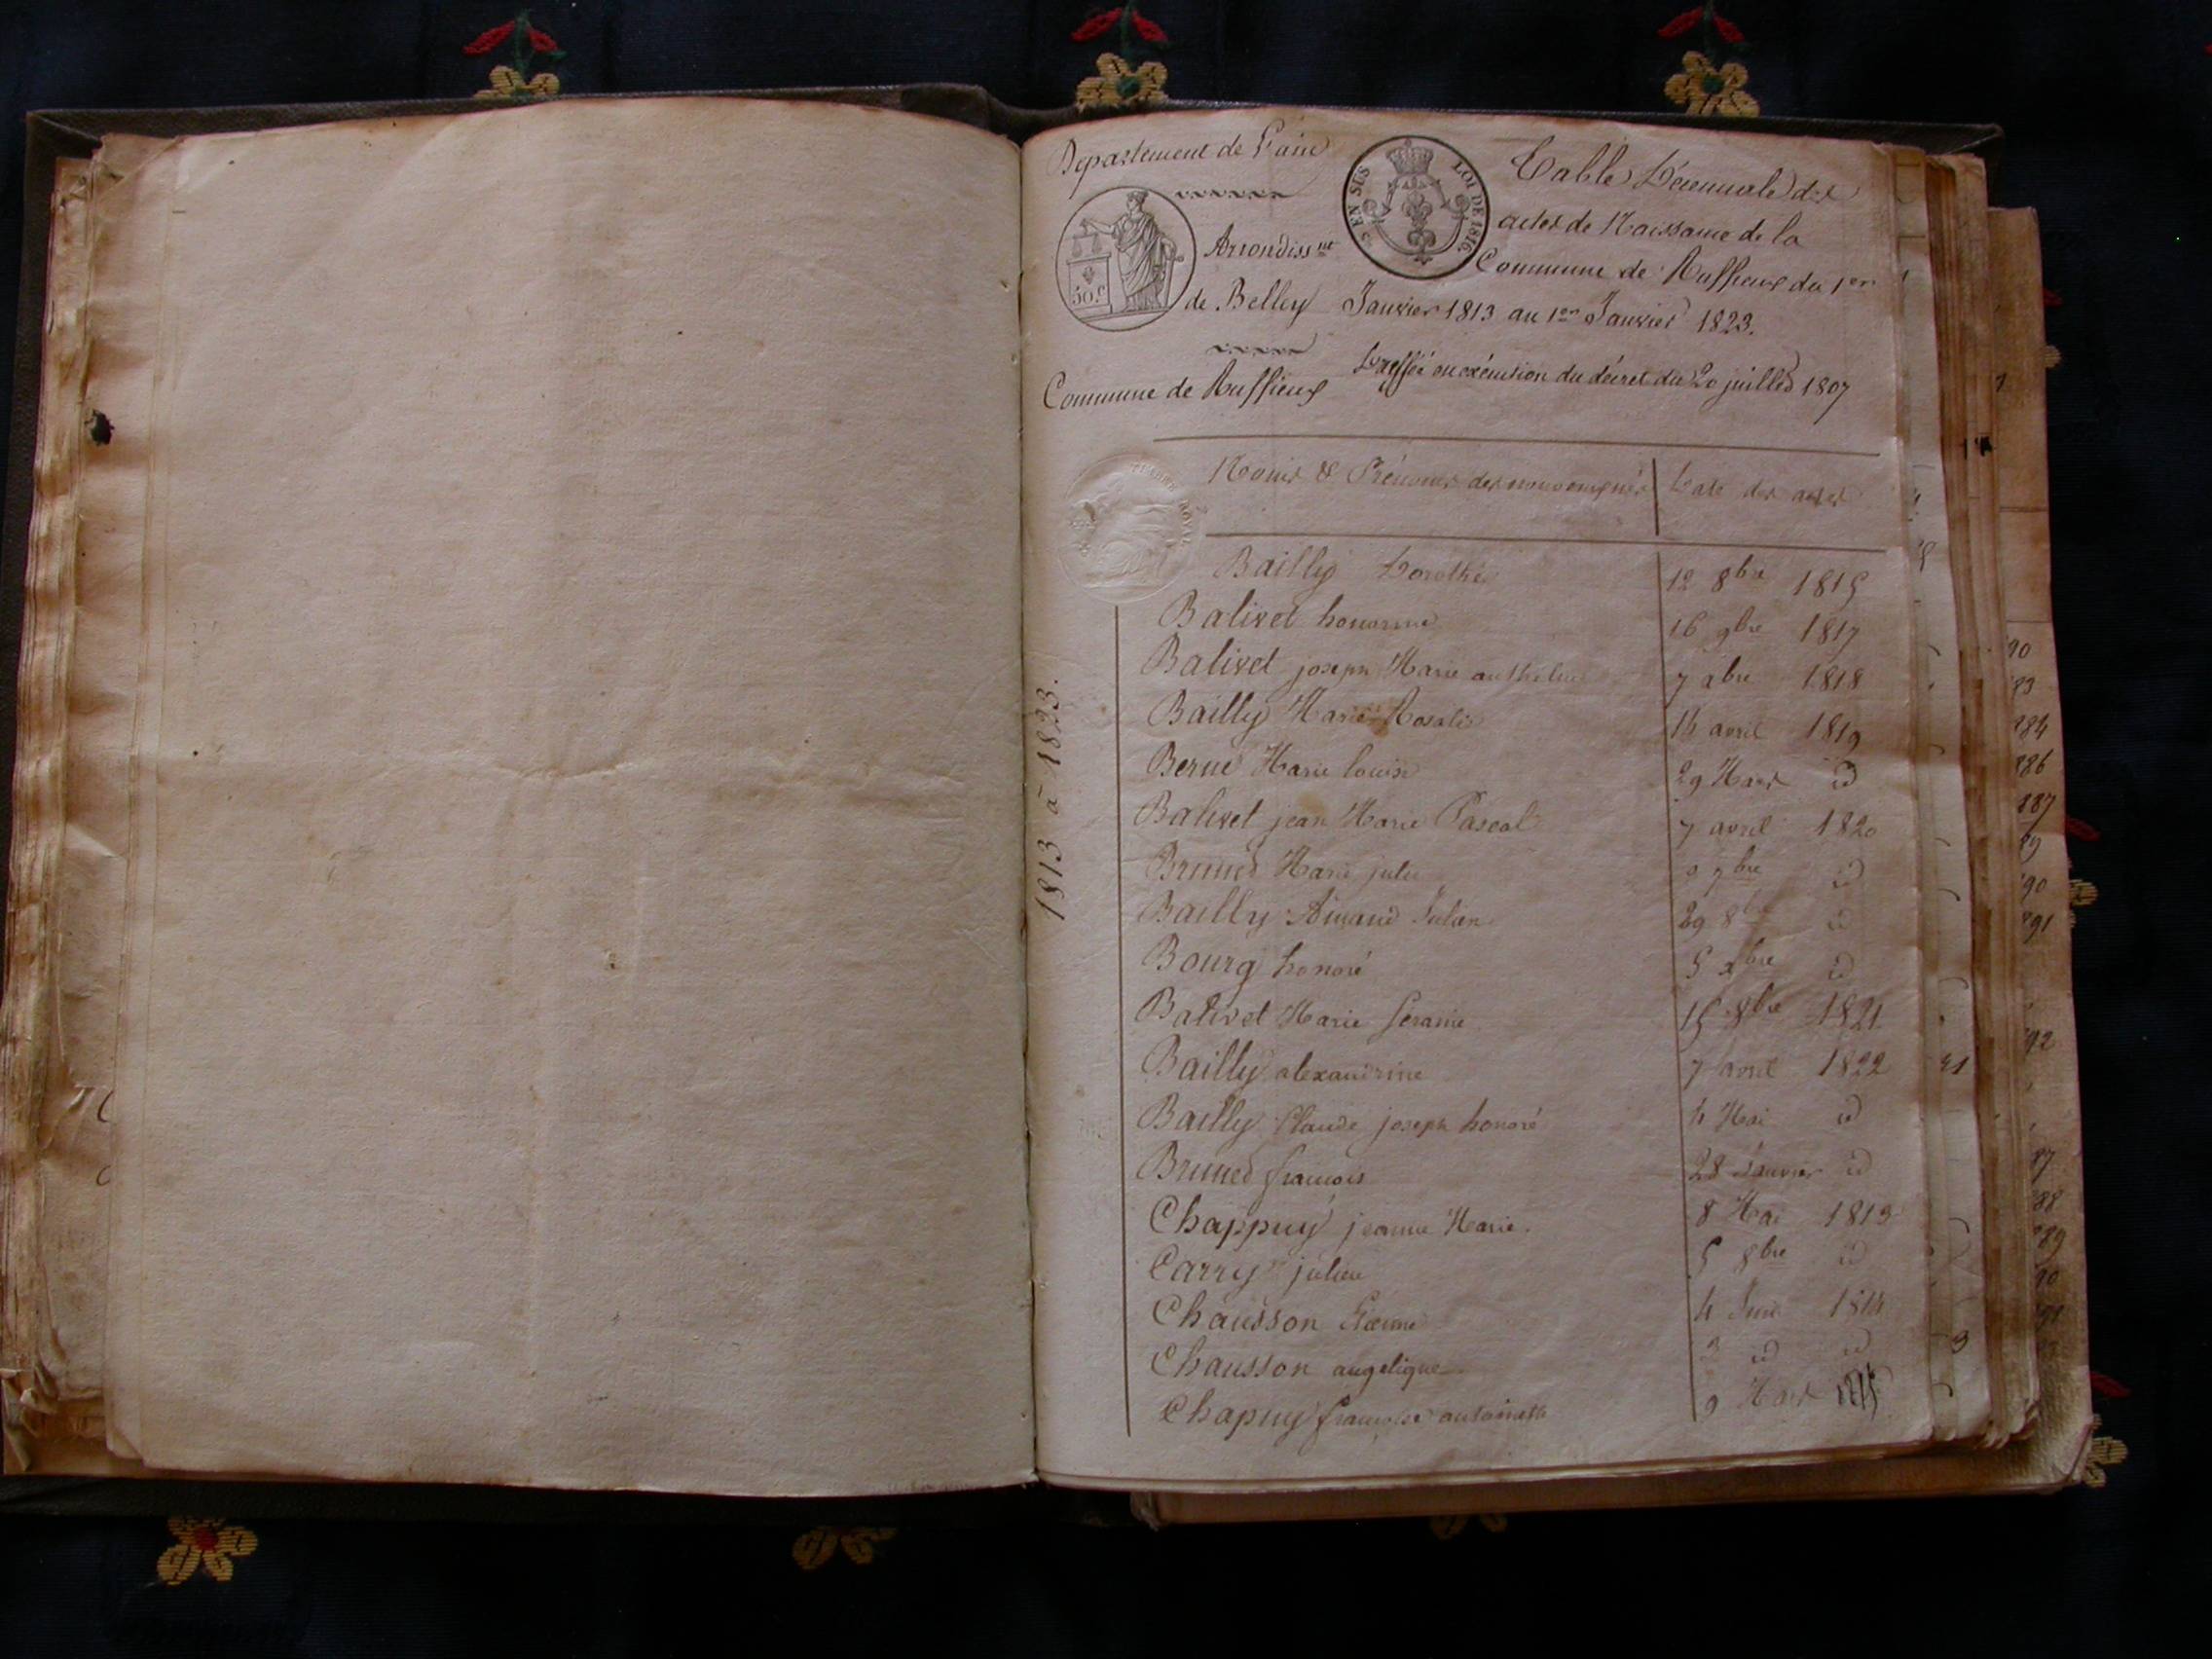 Departement de l'ain
Arrondissnt
de Belley
Commune de Ruffieux
50.c
5 EN SUS LOI DE 1816.
Table Décennale des
actes de Naissance de la
Commune de Ruffieux du 1er
Janvier 1813 au 1er Janvier 1823.
Dressée en exécution du décret du 20 juillet 1807
TIMBRE ROYAL
1813 à 1823.
Noms & Prénoms des nouveaux nés Date des actes
Bailly Dorothé 12 8bre 1815
Balivet honorine 16 9bre 1817
Balivet joseph Marie anthelme 7 xbre 1818
Bailly Marie Rosalie 14 avril 1819
Berne Marie louise 29 Mars id
Balivet jean Marie Pascal 7 avril 1820
Brunet Marie julie 7bre id
Bailly Aimand Julien 29 8bre id
Bourg honoré 5 xbre id
Balivet Marie Séranie 15 8bre 1821
Bailly alexandrine 7 avril 1822
Bailly Claude joseph honoré 4 Mai id
Brunet francois 28 Janvier id
Chappuy jeanne Marie. 8 Mai 1813
Carry julien 5 8bre id
Chausson Etienne 4 Juin 1814
Chausson angelique 3 id id
Chapuy francoise antoinette 9 Mars 1815